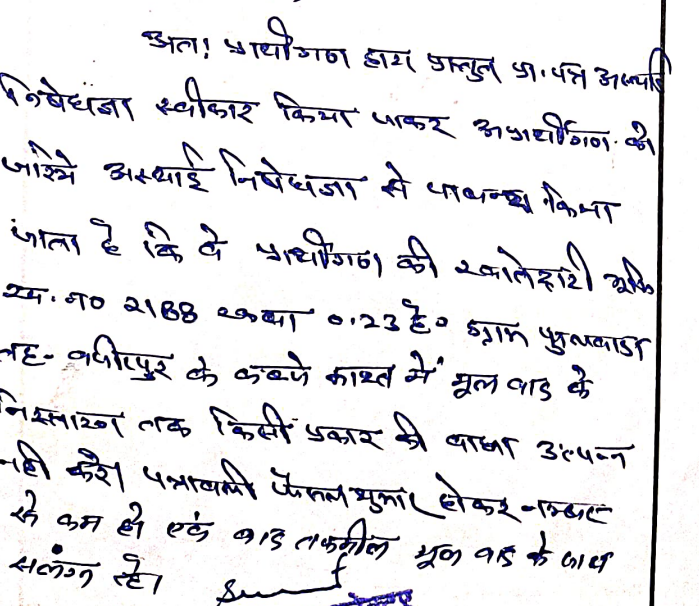 अतः प्रार्थीगण द्वारा प्रस्तुत प्रा. पत्र अस्थाई
निषेधाज्ञा स्वीकार किया जाकर अप्रार्थीगण को
जरिये अस्थाई निषेधाज्ञा से पाबन्द किया
जाता है कि वे प्रार्थीगण की खातेदारी भूमि
ख. न० 2188 रकबा 0.23 है० ग्राम
तह. वजीरपुर के कब्जे काश्त में मूल वाद के
निस्तारण तक किसी प्रकार की बाधा उत्पन्न
नही करे। पत्रावली फैसल शुमार होकर नम्बर
से कम हो एवं बाद तकमील मूल वाद के साथ
सलंग्न रहे।